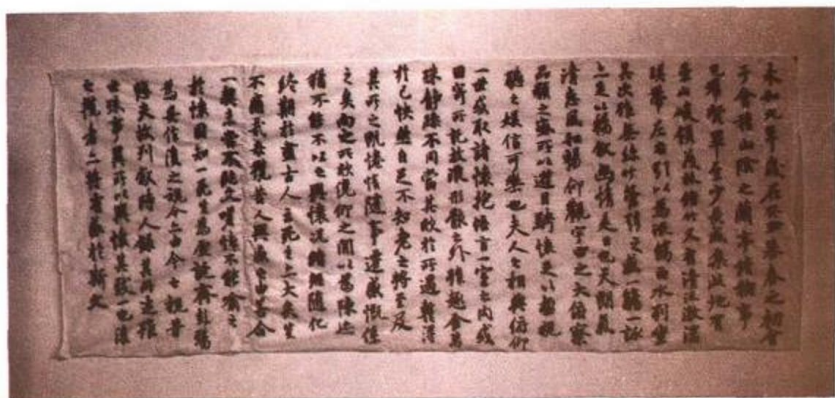 永和九年歲在癸丑暮春之初會
于會稽山陰之蘭亭脩稧事
也群賢畢至少長咸集此地有
崇山峻領茂林脩竹又有清流激湍
暎帶左右引以為流觴曲水列坐
其次雖無絲竹管弦之盛一觴一詠
亦足以暢敘幽情是日也天朗氣
清惠風和暢仰觀宇宙之大俯察
品類之盛所以遊目騁懷足以極視
聽之娛信可樂也夫人之相與俯仰
一世或取諸懷抱悟言一室之內或
因寄所託放浪形骸之外雖趣舍萬
殊靜躁不同當其欣於所遇暫得
於己快然自足不知老之將至及
其所之既惓情隨事遷感慨係
之矣向之所欣俛仰之閒以為陳迹
猶不能不以之興懷況脩短隨化
終期於盡古人云死生亦大矣豈
不痛哉每攬昔人興感之由若合
一契未嘗不臨文嗟悼不能喻之
於懷固知一死生為虛誕齊彭殤
為妄作後之視今亦由今之視昔
悲夫故列敘時人錄其所述雖
世殊事異所以興懷其致一也後
之攬者亦將有感於斯文